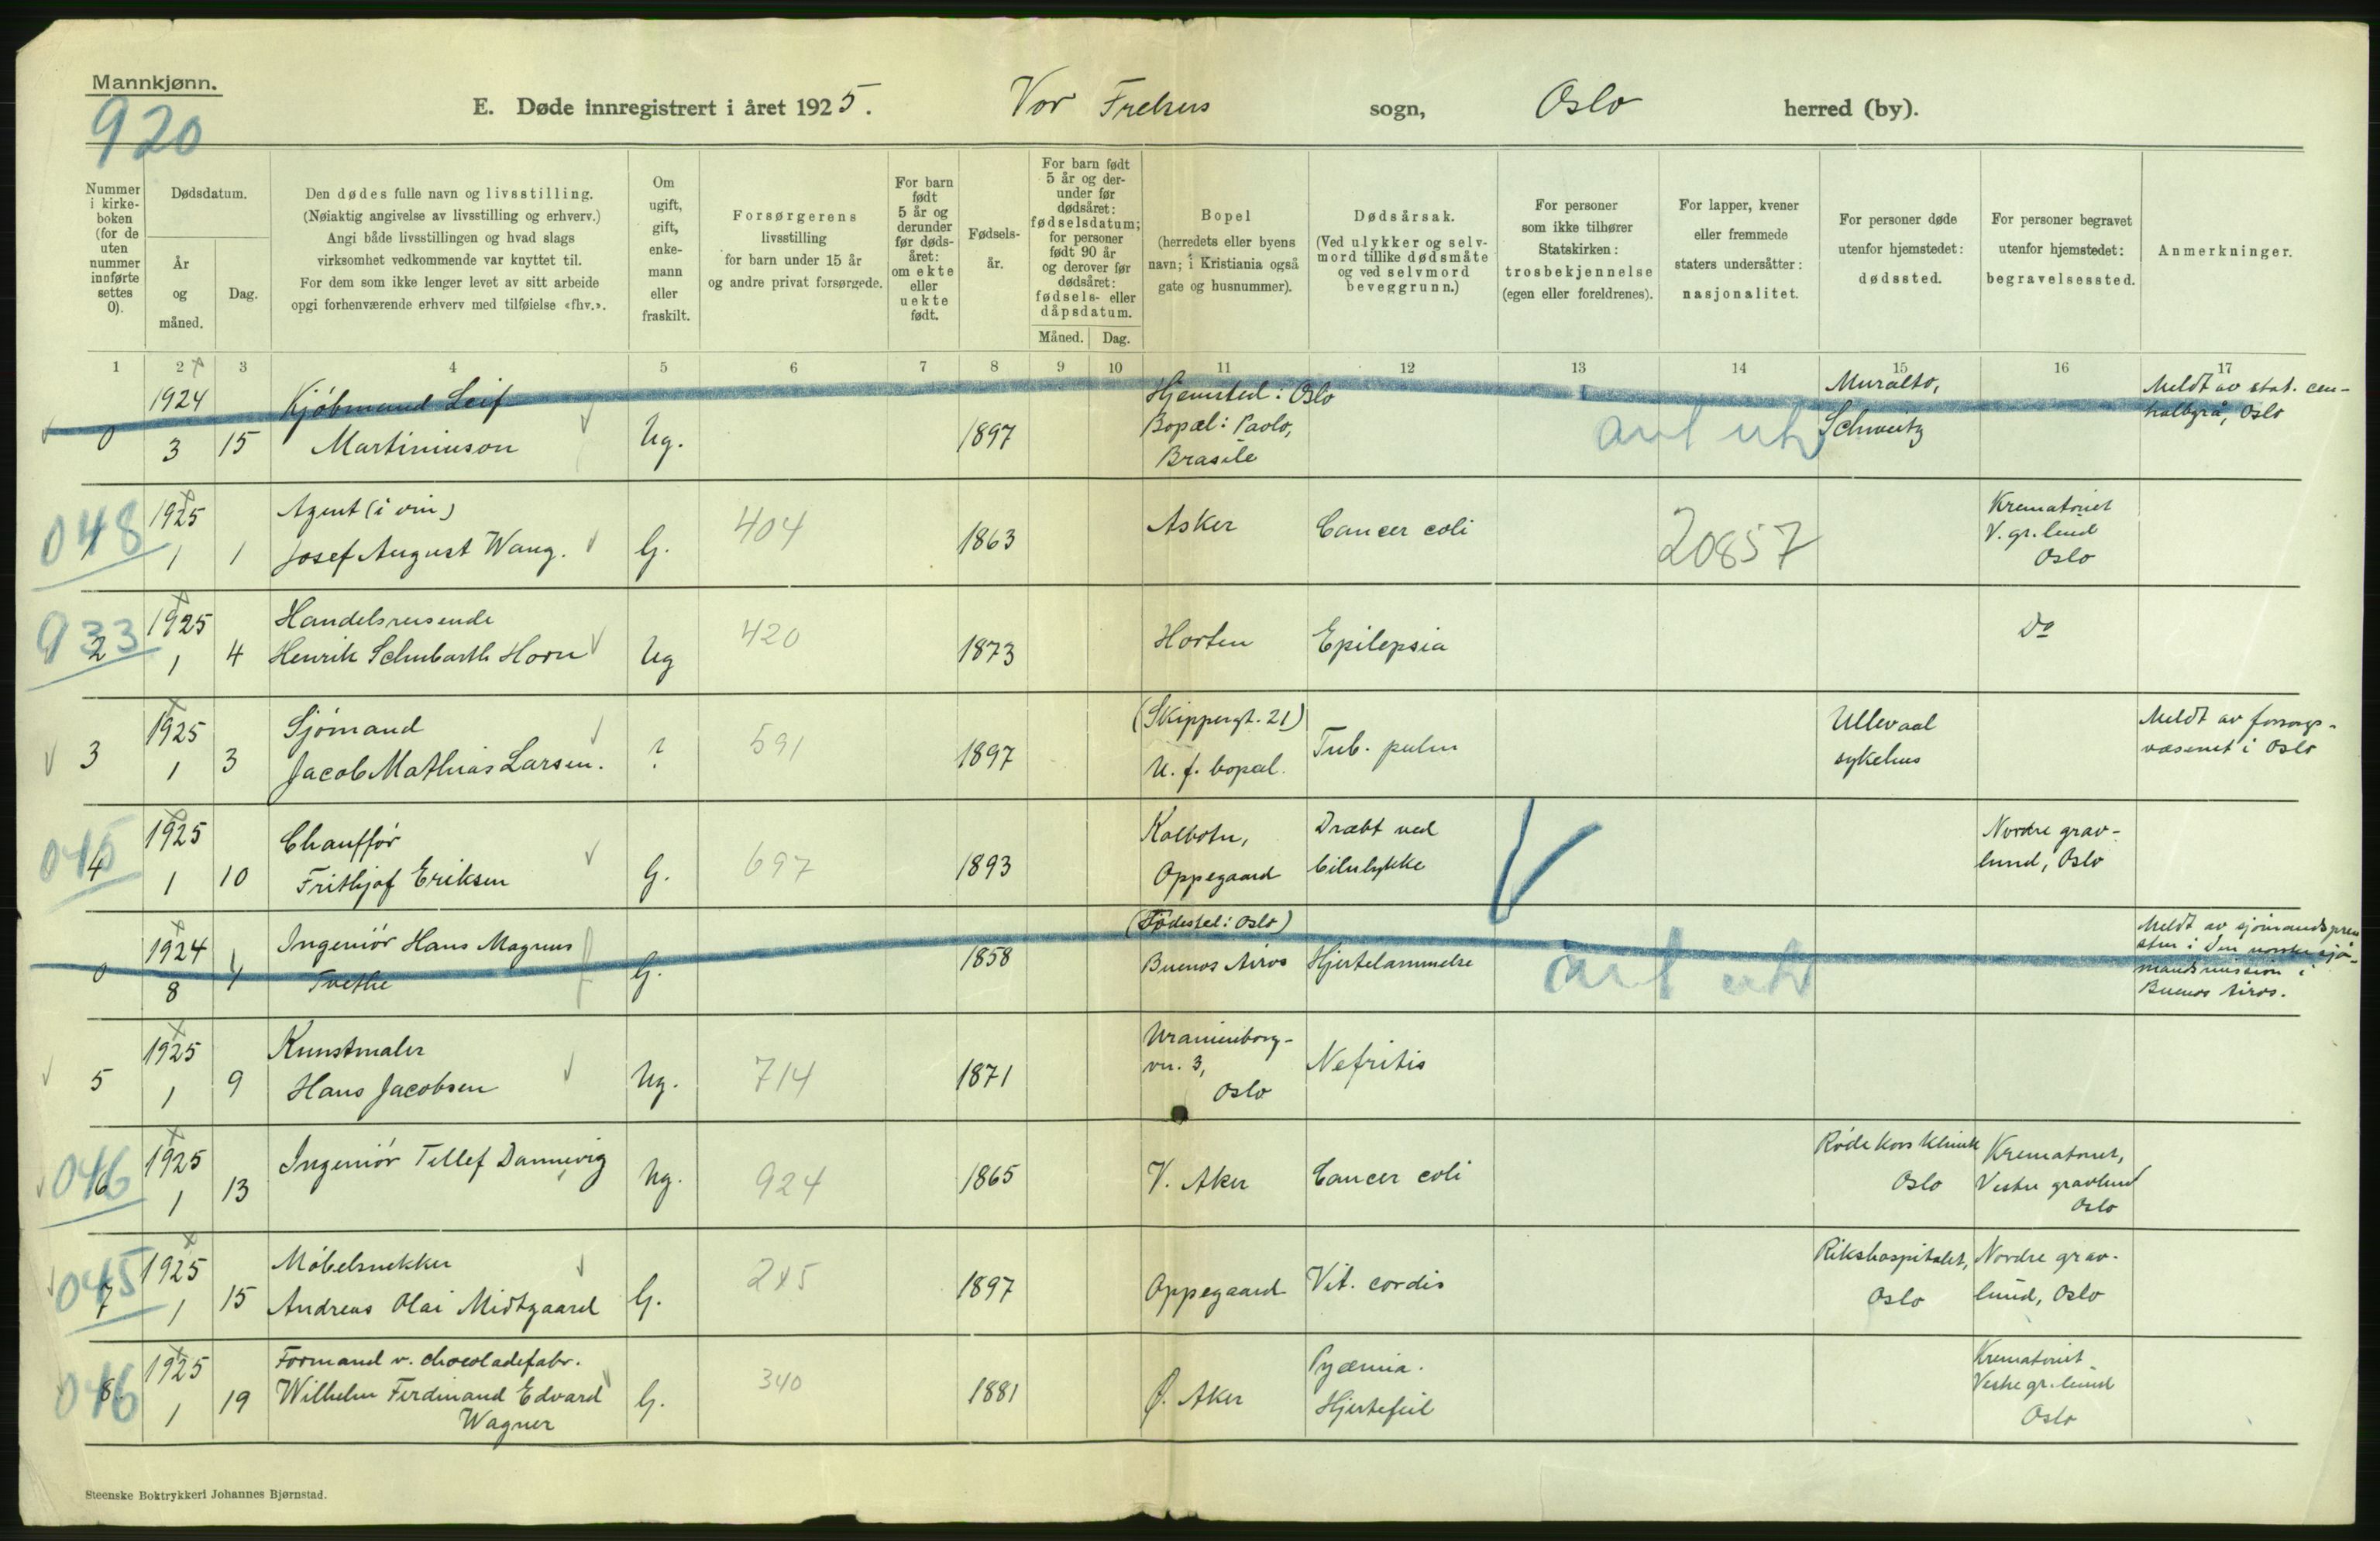 Mannkjønn.
920
E. Døde innregistrert i året 1925.
Vor Frelsers sogn,
Oslo herred (by).
Nummer
i kirke-
boken
(for de
uten
nummer
innførte
settes
0).
Dødsdatum.
År
og
måned.
Dag.
Den dødes fulle navn og livsstilling.
(Nøiaktig angivelse av livsstilling og erhverv.)
Angi både livsstillingen og hvad slags
virksomhet vedkommende var knyttet til.
For dem som ikke lenger levet av sitt arbeide
opgi forhenværende erhverv med tilføielse «fhv.».
Om
ugift,
gift,
enke-
mann
eller
fraskilt.
Forsørgerens
livsstilling
for barn under 15 år
og andre privat forsørgede.
For barn
født
5 år og
derunder
før døds-
året:
om ekte
eller
uekte
født.
Fødsels-
år.
For barn født
5 år og der-
under før
dødsåret:
fødselsdatum;
for personer
født 90 år
og derover før
dødsåret:
fødsels- eller
dåpsdatum.
Måned.
Dag.
Bopel
(herredets eller byens
navn; i Kristiania også
gate og husnummer).
Dødsårsak.
(Ved ulykker og selv-
mord tillike dødsmåte
og ved selvmord
beveggrunn.)
For personer
som ikke tilhører
Statskirken:
trosbekjennelse
(egen eller foreldrenes).
For lapper, kvener
eller fremmede
staters undersåtter:
nasjonalitet.
For personer døde
utenfor hjemstedet:
dødssted.
For personer begravet
utenfor hjemstedet:
begravelsessted.
Anmerkninger.
1 2 3 4 5 6 7 8 9 10 11 12 13 14 15 16 17
0
1924
3
15
Kjøbmand Leif
Martiniuson
Ug.
1897
Hjemsted: Oslo
Bopæl: Paolo,
Brasile
ant utv
Muralto,
Schweitz
Meldt av stat. cen-
tralbyrå, Oslo
048
1
1925
1
1
Agent (i vin)
Josef August Wang.
G.
404
1863
Asker
Cancer coli
20857
Krematoriet
V. gr. lund
Oslo
933
2
1925
1
4
Handelsreisende
Henrik Schubarth Horn
Ug
420
1873
Horten
Epilepsia
Do
3
1925
1
3
Sjömand
Jacob Mathias Larsen.
?
591
1897
(Skippergt. 21)
U. f. bopæl.
Tub. pulm
Ullevaal
sykehus
Meldt av forsorgs-
væsenet i Oslo
045
4
1925
1
10
Chauffør
Frithjof Eriksen
G.
697
1893
Kolbotn,
Oppegaard
Dræbt ved
bilulykke
Nordre grav-
lund, Oslo
0
1924
8
4
Ingeniør Hans Magnus
Tvethe
G.
1858
(Fødested: Oslo)
Buenos Airos
Hjertelammelse
ant utv
Meldt av sjömandspre-
sten i Den norske sjö-
mandsmission i
Buenos Airos.
5
1925
1
9
Kunstmaler
Hans Jacobsen
Ug.
714
1871
Uranienborg-
vn. 3,
Oslo
Nefritis
046
6
1925
1
13
Ingeniør Tellef Dannevig
Ug.
924
1865
V. Aker
Cancer coli
Røde Kors Klinik
Oslo
Krematoriet,
Vestre gravlund
Oslo
045
7
1925
1
15
Møbelsnekker
Andreas Olai Midtgaard
G.
245
1897
Oppegaard
Vit. cordis
Rikshospitalet,
Oslo
Nordre grav-
lund, Oslo
046
8
1925
1
19
Formand v. chocoladefabr.
Wilhelm Ferdinand Edvard
Wagner
G.
340
1881
Ø. Aker
Pyæmia.
Hjertefeil
Krematoriet
Vestre gr. lund
Oslo
Steenske Boktrykkeri Johannes Bjørnstad.